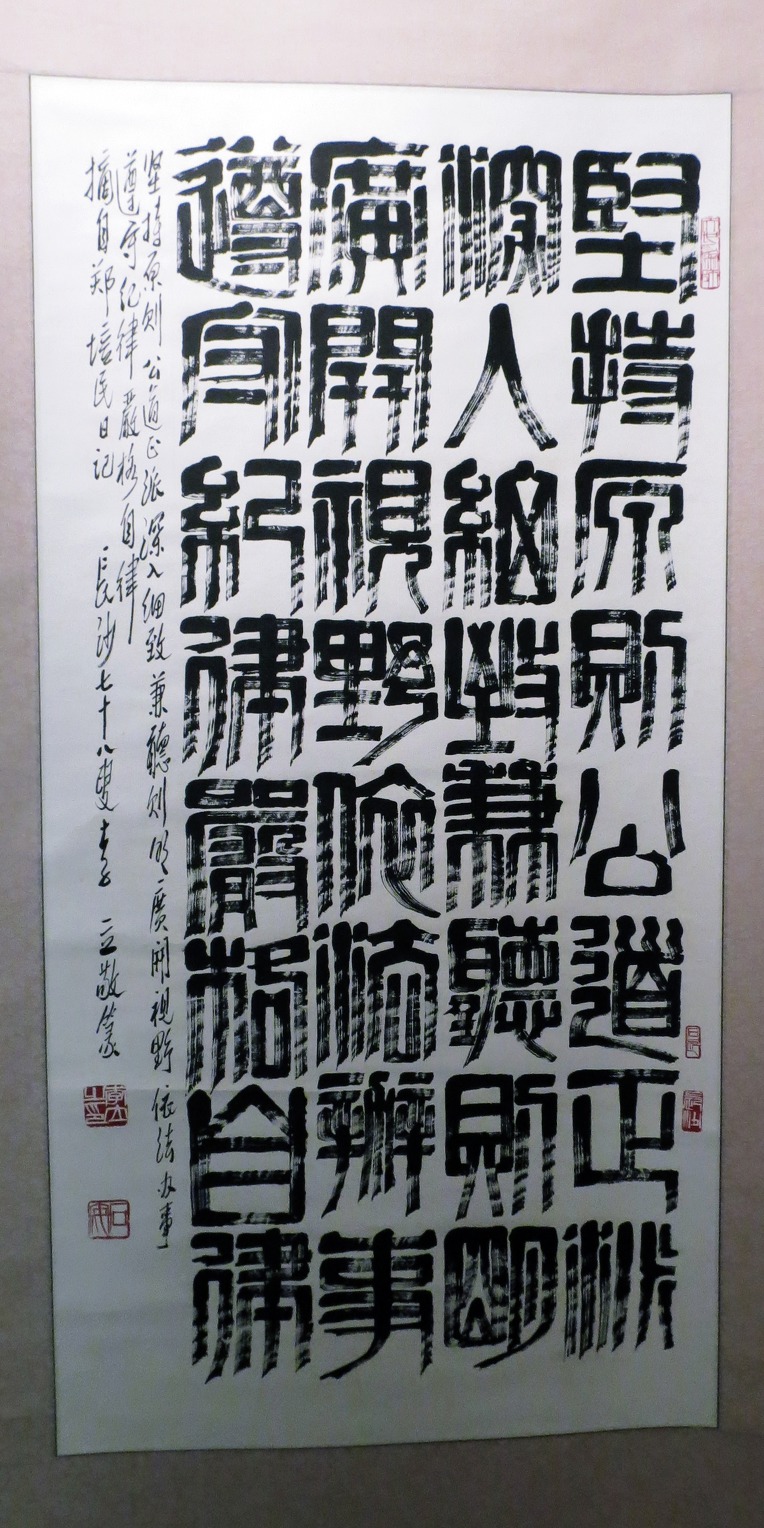 堅持原則公道正派
深入細致兼聽則明
廣開視野依法辦事
遵守紀律嚴格自律
坚持原则 公道正派 深入细致 兼聽则明 廣開視野 依法办事
遵守纪律 嚴格自律
摘自郑培民日记 长沙七十八叟 李立敬篆